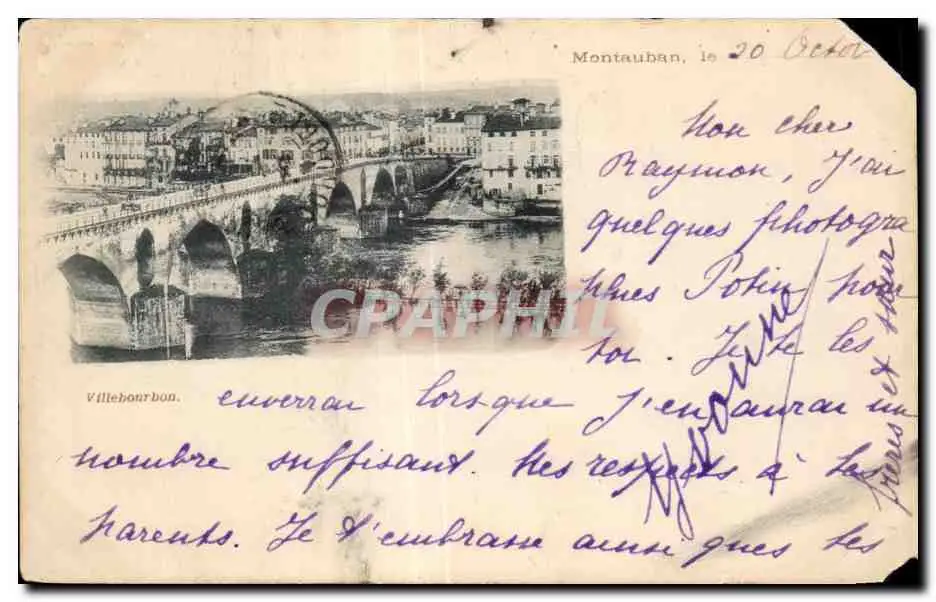 Montauban, le 20 Octo
Mon cher
Raymon, J'ai
quelques photogra
phies Potin pour
toi. Je te les
Villebourbon.
enverrai lorsque j'en aurai un
nombre suffisant. Mes respects à tes
parents. Je t'embrasse ainsi que tes
frères et sœur
Yvonne
CPAPHIL